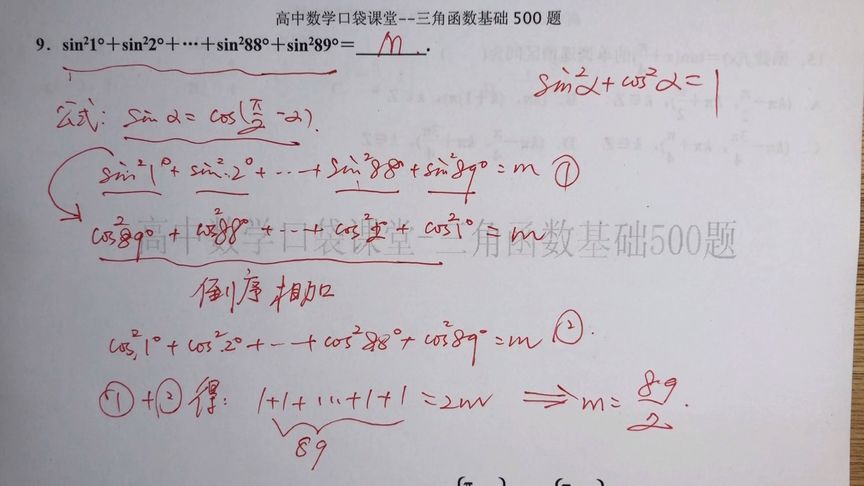 高中数学口袋课堂--三角函数基础 500 题
9. sin²1°+sin²2°+⋯+sin²88°+sin²89°= m .
sin²α+cos²α=1
公式: sinα=cos(π/2-α).
sin²1°+sin²2°+⋯+sin²88°+sin²89°=m ①
cos²89°+cos²88°+⋯+cos²2°+cos²1°=m
高中数学口袋课堂--三角函数基础500题
倒序相加
cos²1°+cos²2°+⋯+cos²88°+cos²89°=m ②.
①+②得: 1+1+⋯+1+1=2m ⟹ m=89/2.
89